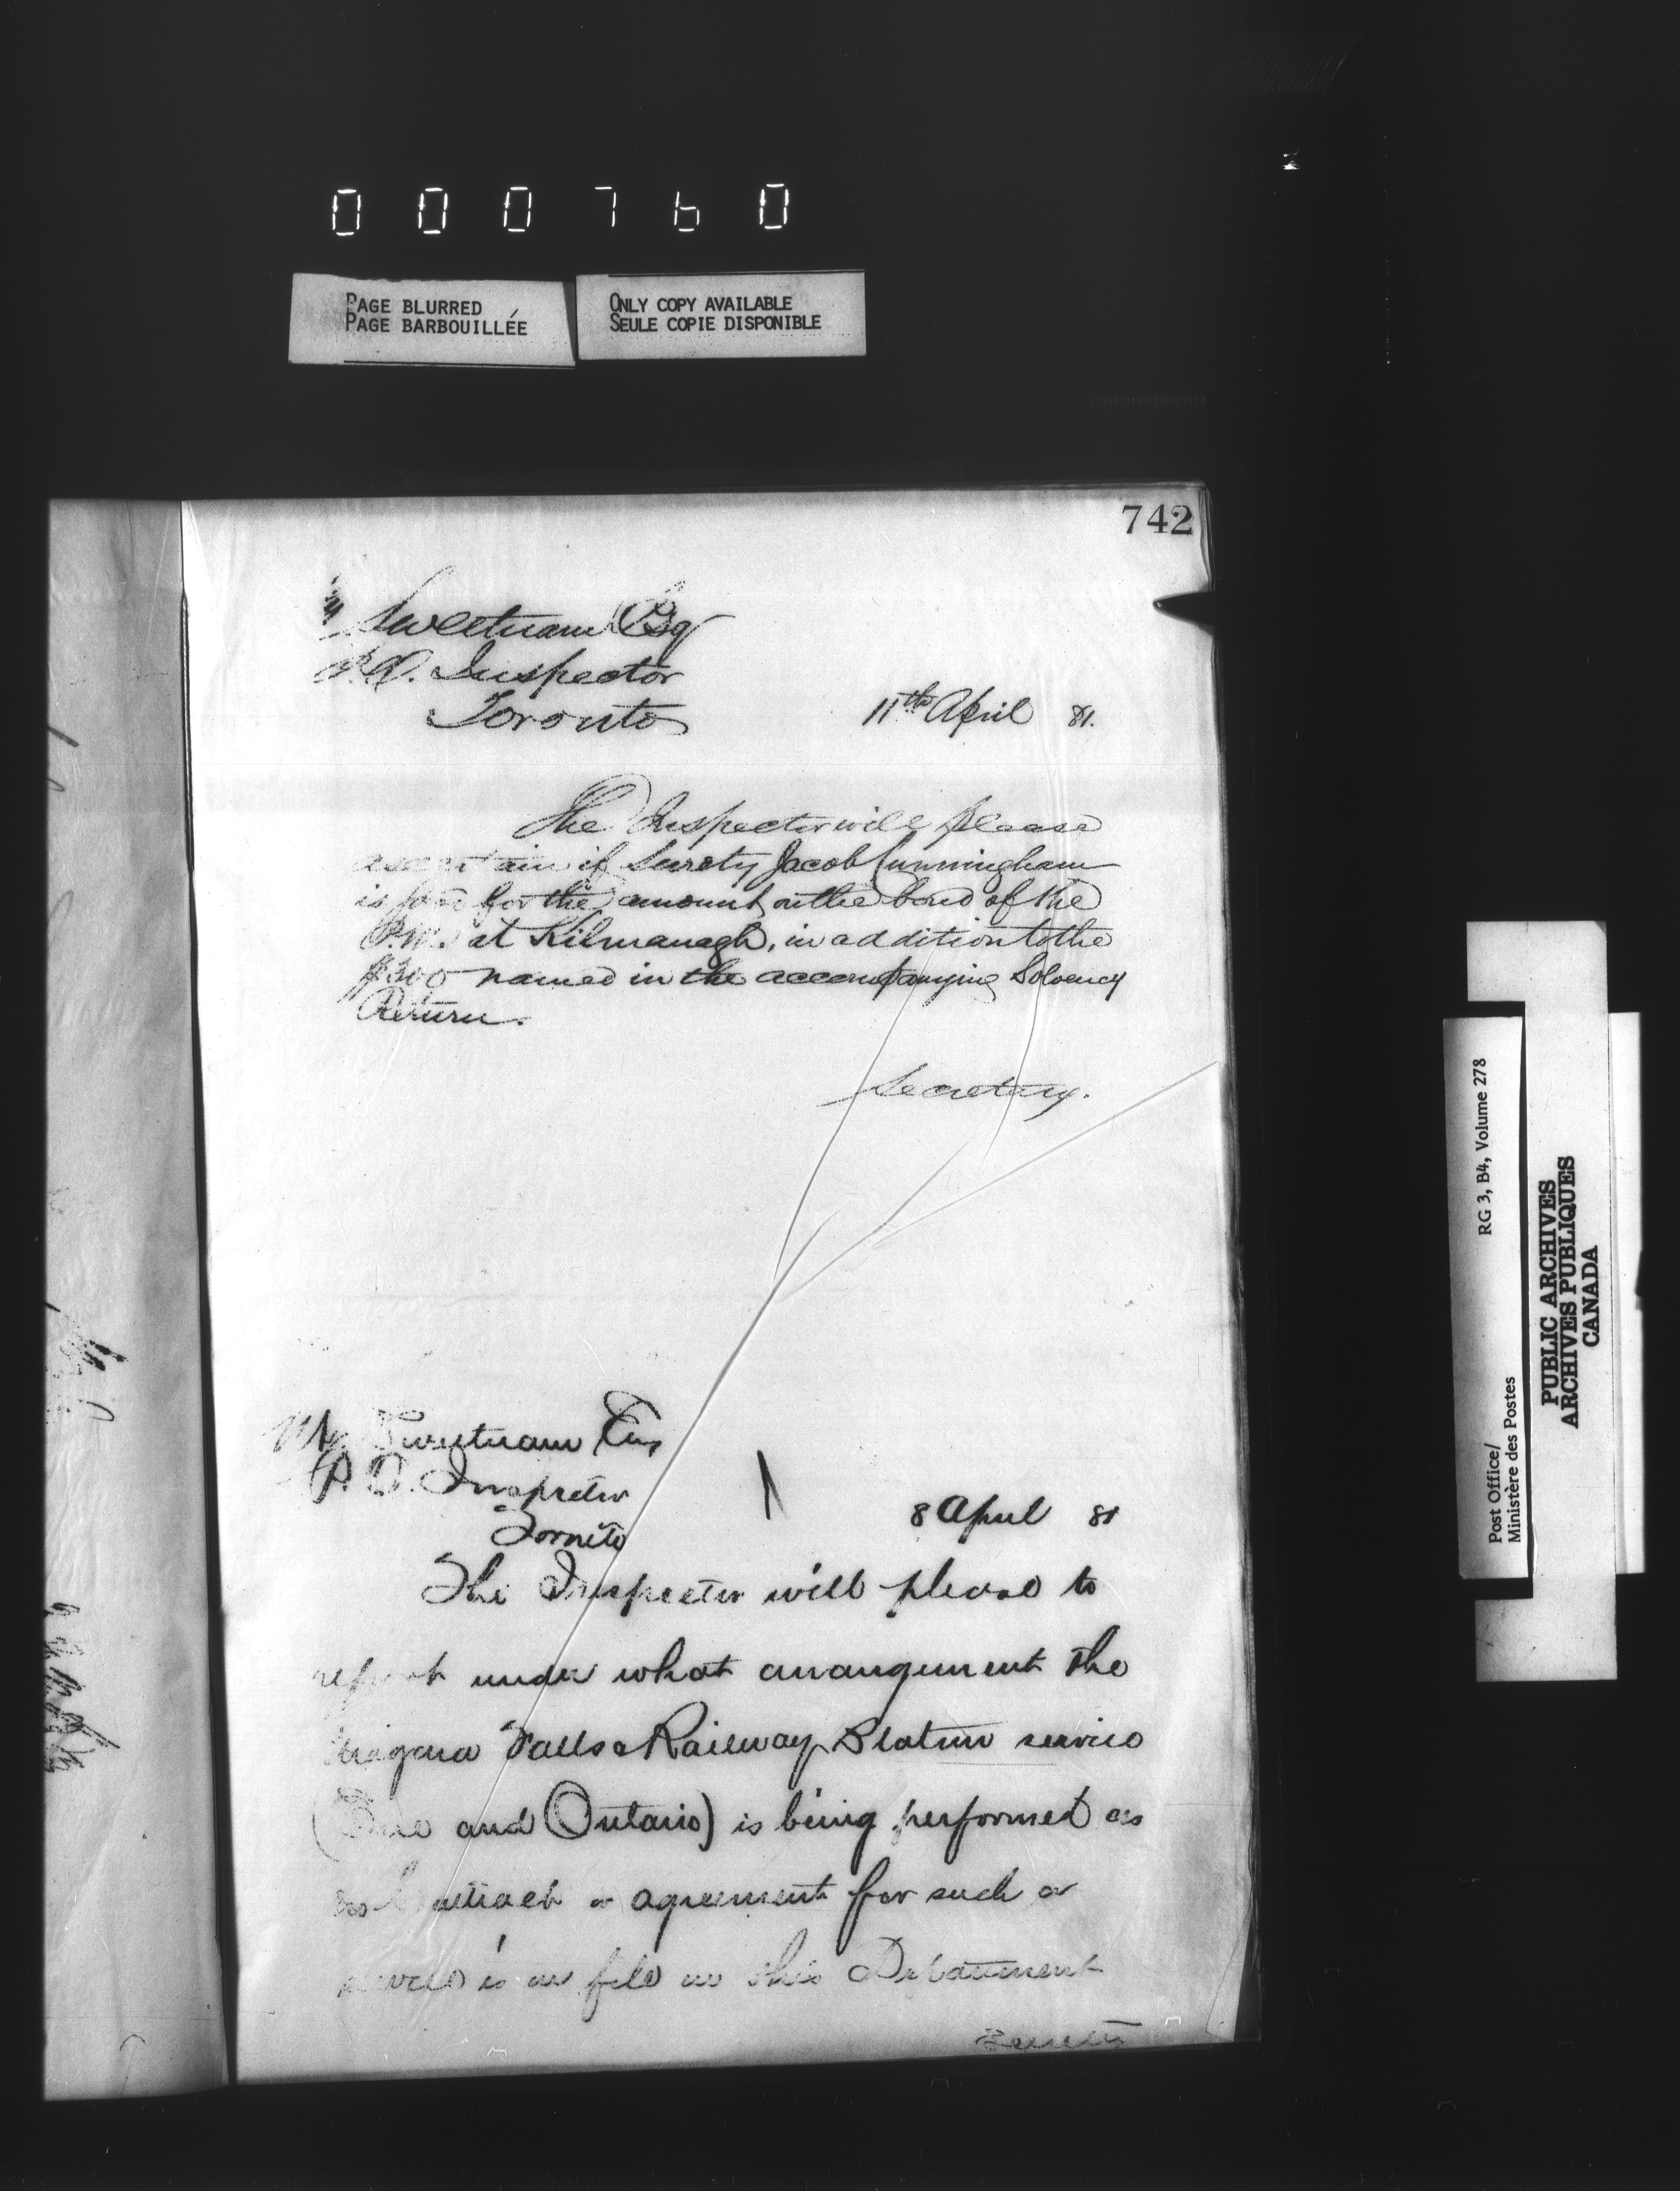 000760
PAGE BLURRED
PAGE BARBOUILLÉE
ONLY COPY AVAILABLE
SEULE COPIE DISPONIBLE
742
Sweetnam Esq
P.O. Inspector
Toronto
11th April 81.
The Inspector will please
ascertain if Surety Jacob Cunningham
is good for the amount on the bond of the
P.M. at Kilmanagh, in addition to the
$300 named in the accompanying Solvency
Return.
Secretary.
M Sweetnam Esq
P O. Inspector
Toronto
8 April 81
The Inspector will please to
report under what arrangement the
Niagara Falls & Railway Station service
and Ontario) is being performed as
no contract or agreement for such a
service is on file in this Department
RG 3, B4, Volume 278
Post Office/
Ministère des Postes
PUBLIC ARCHIVES
ARCHIVES PUBLIQUES
CANADA